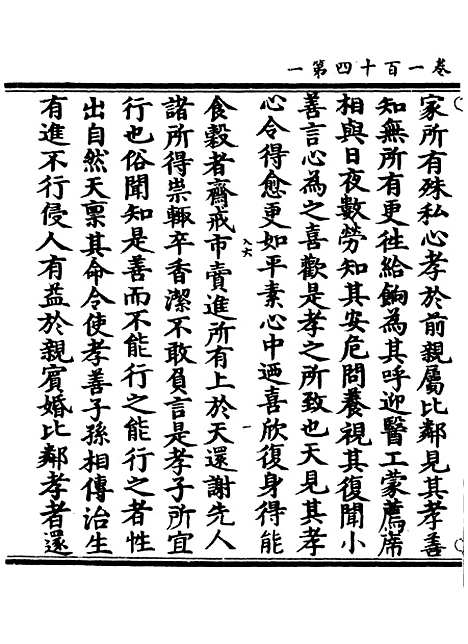 卷一百十四第一
家所有殊私心孝於前親屬比鄰見其孝善
知無所有更往給餉為其呼迎醫工蒙薦席
相與日夜數勞知其安危問養視其復聞小
善言心為之喜歡是孝之所致也天見其孝
心令得愈更如平素心中迺喜欣復身得能
食穀者齋戒市賣進所有上於天還謝先人
諸所得祟輙卒香潔不敢負言是孝子所宜
行也俗聞知是善而不能行之能行之者性
出自然天稟其命令使孝善子孫相傳治生
有進不行侵人有益於親賓婚比鄰孝者還
入六
一